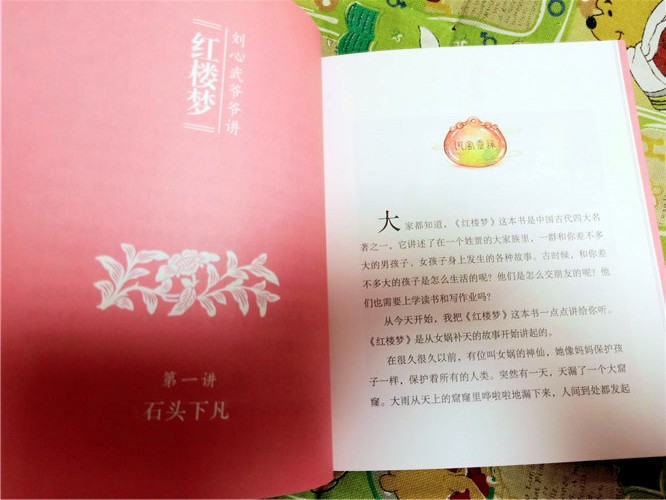 刘心武爷爷讲
『红楼梦』
第一讲
石头下凡
大家都知道，《红楼梦》这本书是中国古代四大名
著之一，它讲述了在一个姓贾的大家族里，一群和你差不多
大的男孩子、女孩子身上发生的各种故事。古时候，和你差
不多大的孩子是怎么生活的呢？他们是怎么交朋友的呢？他
们也需要上学读书和写作业吗？
从今天开始，我把《红楼梦》这本书一点点讲给你听。
《红楼梦》是从女娲补天的故事开始讲起的。
在很久很久以前，有位叫女娲的神仙，她像妈妈保护孩
子一样，保护着所有的人类。突然有一天，天漏了一个大窟
窿。大雨从天上的窟窿里哗啦啦地漏下来，人间到处都发起